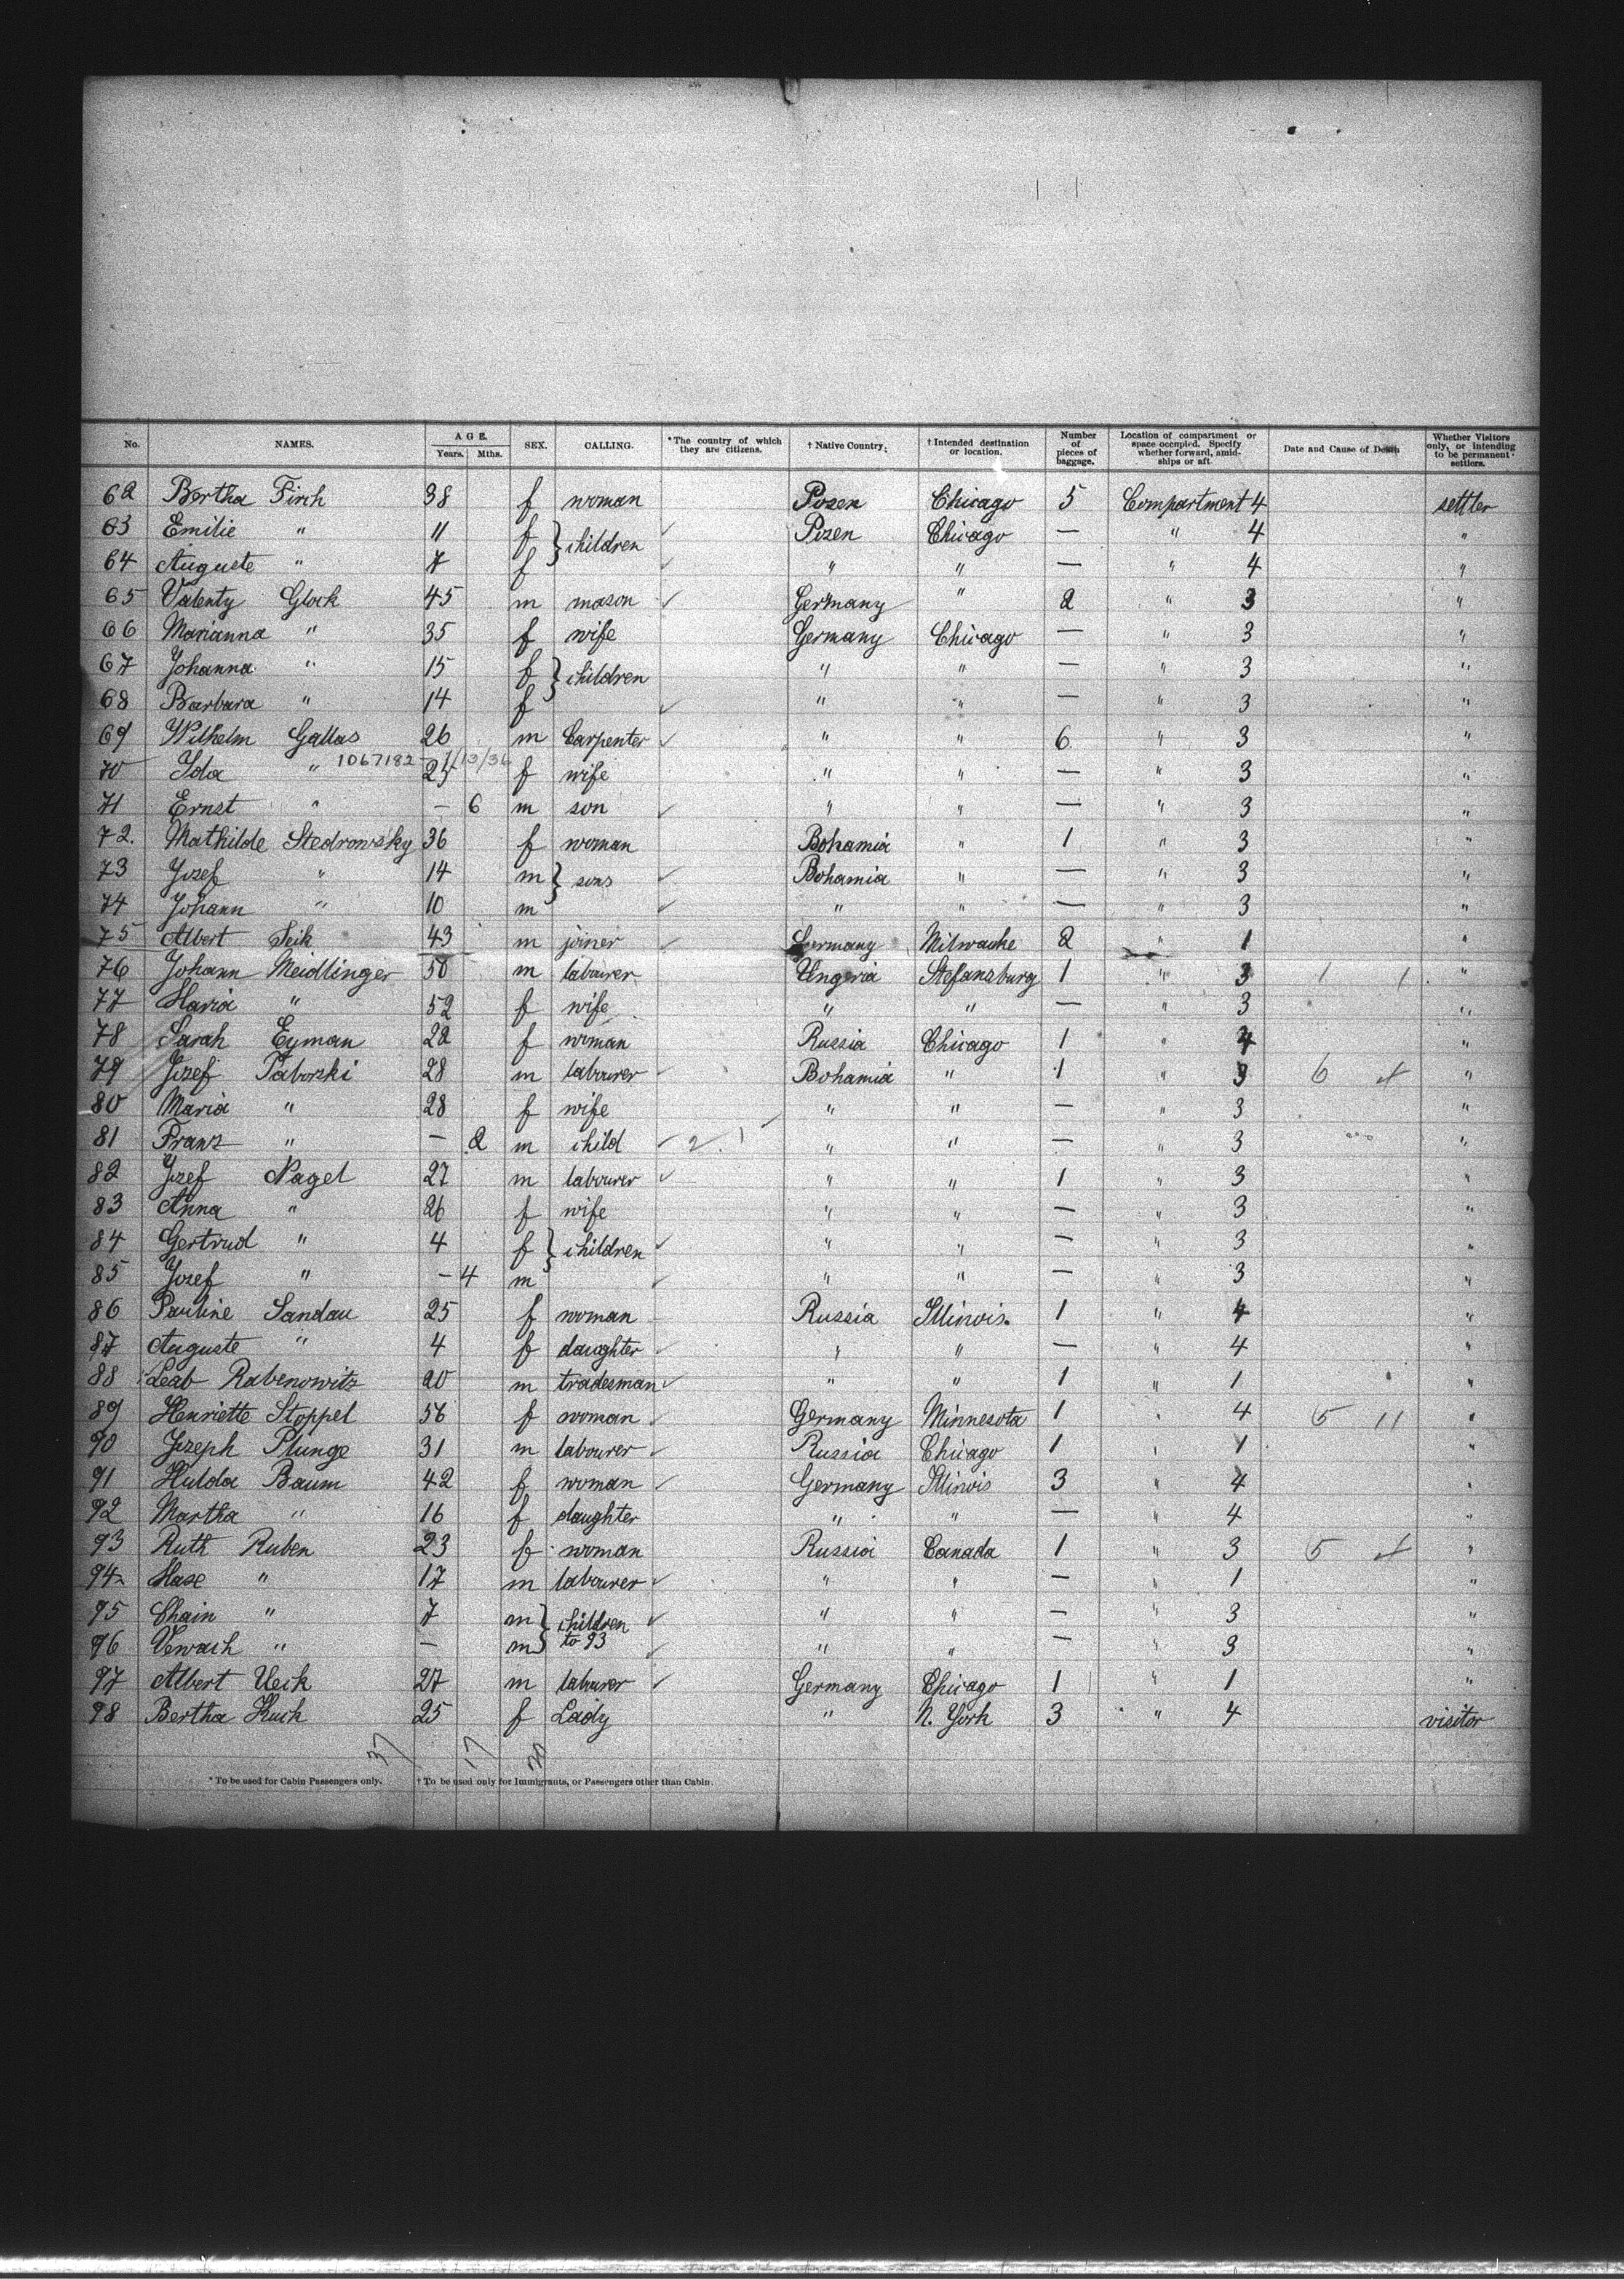 No. NAMES. AGE. Years. Mths. SEX. CALLING. *The country of which they are citizens. †Native Country. †Intended destination or location. Number of pieces of baggage. Location of compartment or space occupied. Specify whether forward, amidships or aft. Date and Cause of Death Whether Visitors only, or intending to be permanent settlers.
62 Bertha Firch 38 f woman Pozen Chicago 5 Compartment 4 settler
63 Emilie " 11 f } children Pozen Chicago — " 4 "
64 Auguste " 7 f " " — " 4 "
65 Valenty Glock 45 m mason Germany " 2 " 3 "
66 Marianna " 35 f wife Germany Chicago — " 3 "
67 Johanna " 15 f } children " " — " 3 "
68 Barbara " 14 f " " — " 3 "
69 Wilhelm Gallas 26 m Carpenter " " 6 " 3 "
1067182 - 1/13/36
70 Ida " 25 f wife " " — " 3 "
71 Ernst " — 6 m son " " — " 3 "
72. Mathilde Stedrowsky 36 f woman Bohamia " 1 " 3 "
73 Jozef " 14 m } sons Bohamia " — " 3 "
74 Johann " 10 m " " — " 3 "
75 Albert Seik 43 m joiner Germany Milwauke 2 " 1 "
76 Johann Meidlinger 50 m labourer Ungeria Stefansburg 1 " 3 "
77 Maria " 52 f wife " " — " 3 "
78 Sarah Eyman 22 f woman Russia Chicago 1 " 4 "
79 Jozef Taborski 28 m labourer Bohamia " 1 " 3 6 "
80 Maria " 28 f wife " " — " 3 "
81 Franz " — 2 m child " " — " 3 "
82 Jozef Nagel 27 m labourer " " 1 " 3 "
83 Anna " 26 f wife " " — " 3 "
84 Gertrud " 4 f } children " " — " 3 "
85 Jozef " — 4 m " " — " 3 "
86 Pauline Sandau 25 f woman Russia Illinois. 1 " 4 "
87 Auguste " 4 f daughter " " — " 4 "
88 Leab Rabenowitz 20 m tradesman " " 1 " 1 "
89 Henriette Stoppel 56 f woman Germany Minnesota 1 " 4 5 11 "
90 Jozeph Plunge 31 m labourer Russia Chicago 1 " 1 "
91 Hulda Baum 42 f woman Germany Illinois 3 " 4 "
92 Martha " 16 f daughter " " — " 4 "
93 Ruth Ruben 23 f woman Russia Canada 1 " 3 5 "
94 Hase " 17 m labourer " " — " 1 "
95 Chain " 7 m } children " " — " 3 "
96 Vewach " — m to 93 " " — " 3 "
97 Albert Ueck 27 m labourer Germany Chicago 1 " 1 "
98 Bertha Kuch 25 f Lady " N. York 3 " 4 visitor
37 17 20
*To be used for Cabin Passengers only. †To be used only for Immigrants, or Passengers other than Cabin.